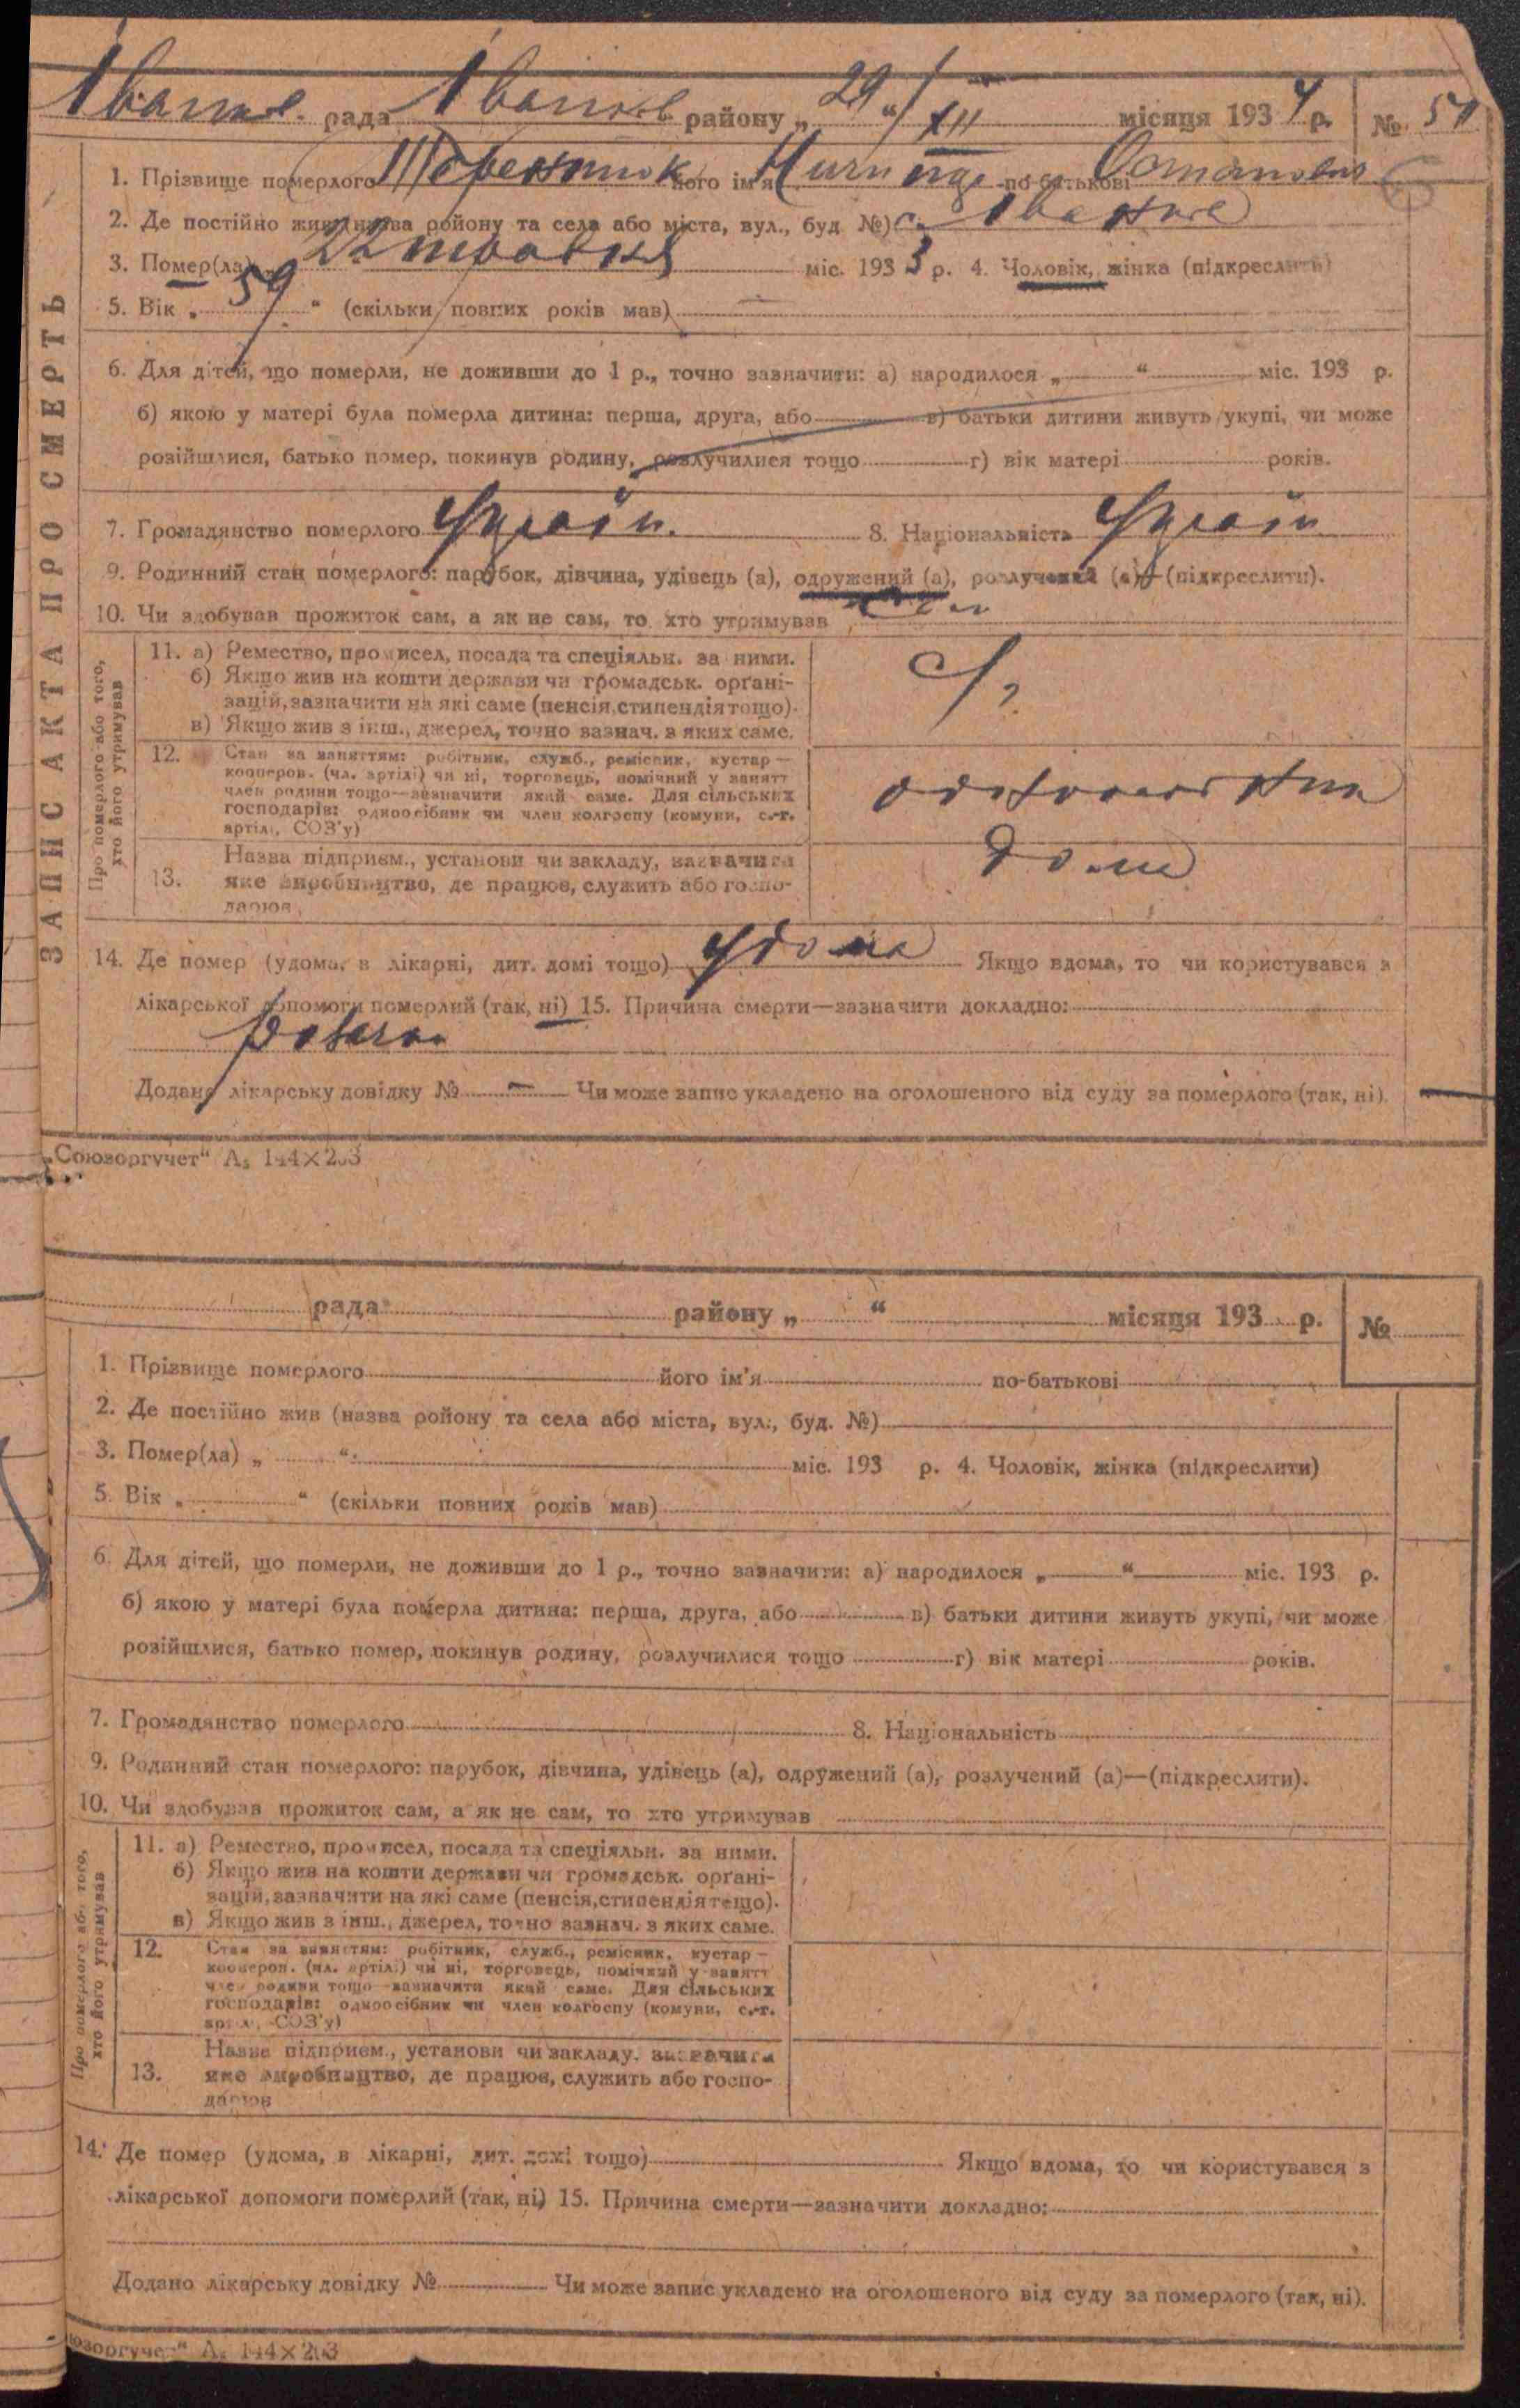 рада району „ 29 “ XII місяця 1934 р. № 51
1. Прізвище померлого його ім'я по-батькові
2. Де постійно жив (назва ройону та села або міста, вул., буд №) с.
3. Помер(ла) „ 22 травня міс. 1933 р. 4. Чоловік, жінка (підкреслити)
5. Вік „ 59 “ (скільки повних років мав)
6. Для дітей, що померли, не доживши до 1 р., точно зазначити: а) народилося „ “ міс. 193 р.
б) якою у матері була померла дитина: перша, друга, або в) батьки дитини живуть укупі, чи може
розійшлися, батько помер, покинув родину, розлучилися тощо г) вік матері років.
7. Громадянство померлого Україн. 8. Національність Україн
9. Родинний стан померлого: парубок, дівчина, удівець (а), одружений (а), розлучений (а)—(підкреслити).
10. Чи здобував прожиток сам, а як не сам, то хто утримував сам
ЗАПИС АКТА ПРО СМЕРТЬ
Про померлого або того,
хто його утримував
11. а) Ремество, промисел, посада та спеціяльн. за ними.
б) Якщо жив на кошти держави чи громадськ. орґані-
зацій, зазначити на які саме (пенсія, стипендія тощо).
в) Якщо жив з інш., джерел, точно зазнач. з яких саме.
12. Стан за заняттям: робітник, служб., ремісник, кустар—
кооперов. (чл. артілі) чи ні, торговець, помічний у занятт
член родини тощо—зазначити який саме. Для сільських
господарів: одноосібник чи член колгоспу (комуни, с.-г.
артілі, СОЗ'у)
13. Назва підприєм., установи чи закладу, зазначити
яке виробництво, де працює, служить або госпо-
дарює
14. Де помер (удома, в лікарні, дит. домі тощо) удома Якщо вдома, то чи користувався з
лікарської допомоги померлий (так, ні) 15. Причина смерти—зазначити докладно:
Додано лікарську довідку № — Чи може запис укладено на оголошеного від суду за померлого (так, ні).
„Союзоргучет“ А₅ 144×203
рада району „ “ місяця 193 р. №
1. Прізвище померлого його ім'я по-батькові
2. Де постійно жив (назва ройону та села або міста, вул., буд. №)
3. Помер(ла) „ “ міс. 193 р. 4. Чоловік, жінка (підкреслити)
5. Вік „ “ (скільки повних років мав)
6. Для дітей, що померли, не доживши до 1 р., точно зазначити: а) народилося „ “ міс. 193 р.
б) якою у матері була померла дитина: перша, друга, або в) батьки дитини живуть укупі, чи може
розійшлися, батько помер, покинув родину, розлучилися тощо г) вік матері років.
7. Громадянство померлого 8. Національність
9. Родинний стан померлого: парубок, дівчина, удівець (а), одружений (а), розлучений (а)—(підкреслити).
10. Чи здобував прожиток сам, а як не сам, то хто утримував
Про померлого або того,
хто його утримував
11. а) Ремество, промисел, посада та спеціяльн. за ними.
б) Якщо жив на кошти держави чи громадськ. орґані-
зацій, зазначити на які саме (пенсія, стипендія тощо).
в) Якщо жив з інш., джерел, точно зазнач. з яких саме.
12. Стан за заняттям: робітник, служб., ремісник, кустар—
кооперов. (чл. артілі) чи ні, торговець, помічний у занятт
член родини тощо—зазначити який саме. Для сільських
господарів: одноосібник чи член колгоспу (комуни, с.-г.
артілі, СОЗ'у)
13. Назва підприєм., установи чи закладу, зазначити
яке виробництво, де працює, служить або госпо-
дарює
14. Де помер (удома, в лікарні, дит. домі тощо) Якщо вдома, то чи користувався з
лікарської допомоги померлий (так, ні) 15. Причина смерти—зазначити докладно:
Додано лікарську довідку № Чи може запис укладено на оголошеного від суду за померлого (так, ні).
юзоргучет“ А₅ 144×203